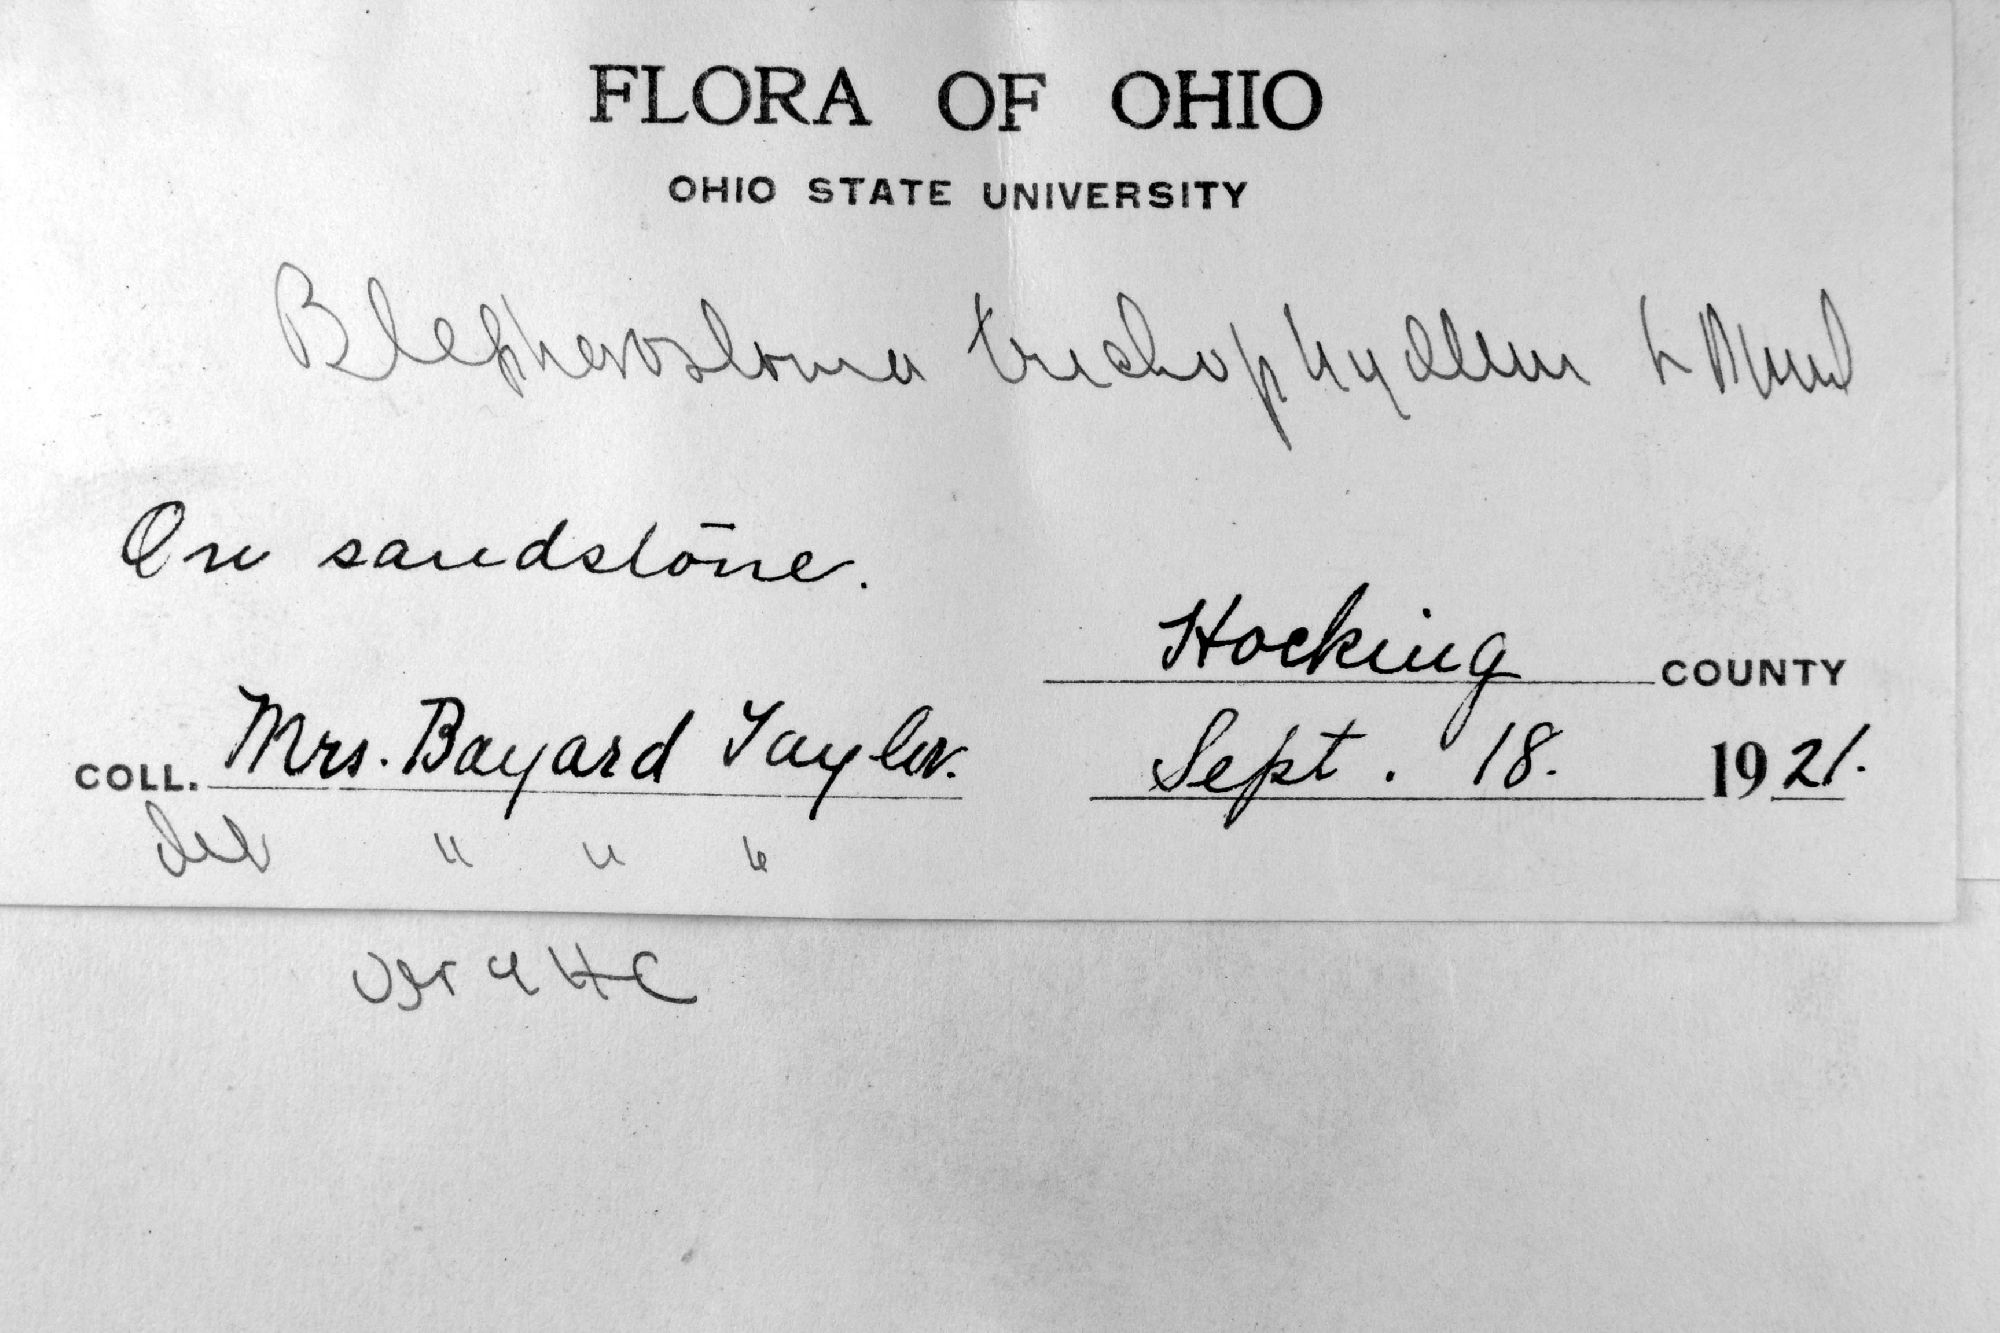 FLORA OF OHIO
OHIO STATE UNIVERSITY
Blepharostoma trichophyllum
On sandstone.
Hocking COUNTY
COLL. Mrs. Bayard Taylor. Sept. 18. 1921.
det " " "
ver